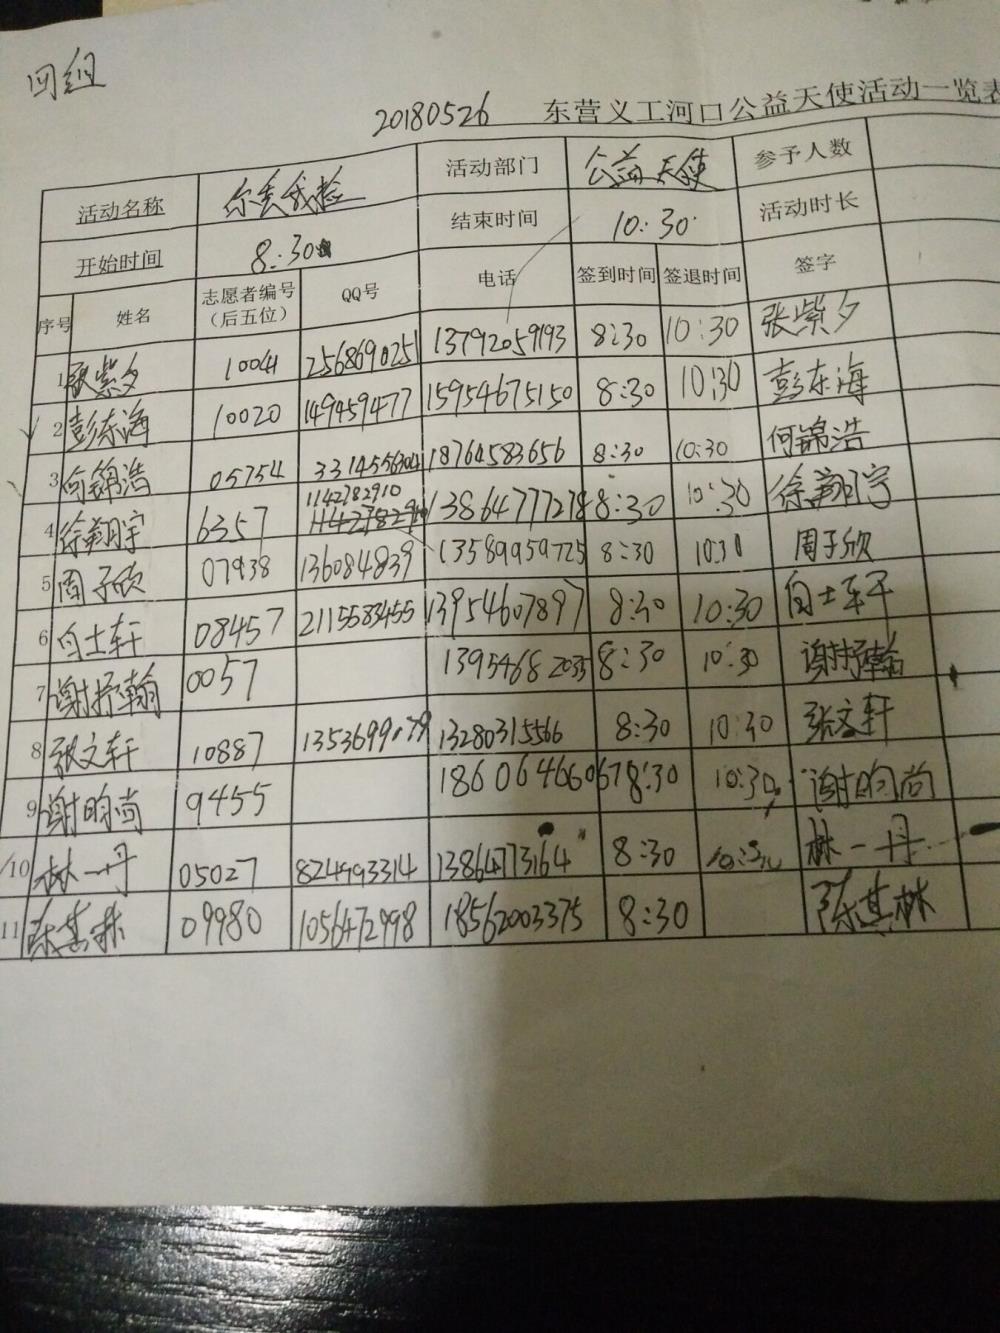 四组
20180526 东营义工河口公益天使活动一览表
活动名称 你丢我捡 活动部门 公益天使 参予人数
开始时间 8:30 结束时间 10:30 活动时长
序号 姓名 志愿者编号（后五位） QQ号 电话 签到时间 签退时间 签字
1 张紫夕 10041 2568690251 13792059193 8:30 10:30 张紫夕
2 彭东海 10020 149459477 15954675150 8:30 10:30 彭东海
3 何锦浩 05754 3314556304 18764583656 8:30 10:30 何锦浩
4 徐翔宇 6357 1142782910 13864777278 8:30 10:30 徐翔宇
5 周子欣 07938 136084839 13589959725 8:30 10:30 周子欣
6 向士轩 08457 2115583455 13954607897 8:30 10:30 向士轩
7 谢抒翰 0057 13954682035 8:30 10:30 谢抒翰
8 张文轩 10887 1353699079 13280315566 8:30 10:30 张文轩
9 谢昀尚 9455 18606466067 8:30 10:30 谢昀尚
10 林一丹 05027 824993314 13864773164 8:30 10:30 林一丹
11 陈其林 09980 1056472998 18562003375 8:30 陈其林